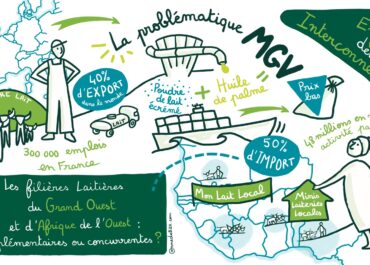 La problématique
MGV
E
de
Interconne
40%
d'EXPORT
dans le monde
LAIT
LAIT
300 000 emplois
en France
Poudre
de lait
écrémé
+
Huile
de palme
Prix
bas
48 millions en
activité pa
50%
d'IMPORT
Mon Lait Local
Minis
Laiteries
Locales
Les filières Laitières
du Grand Ouest
et d'Afrique de l'Ouest :
plémentaires ou concurrentes ?